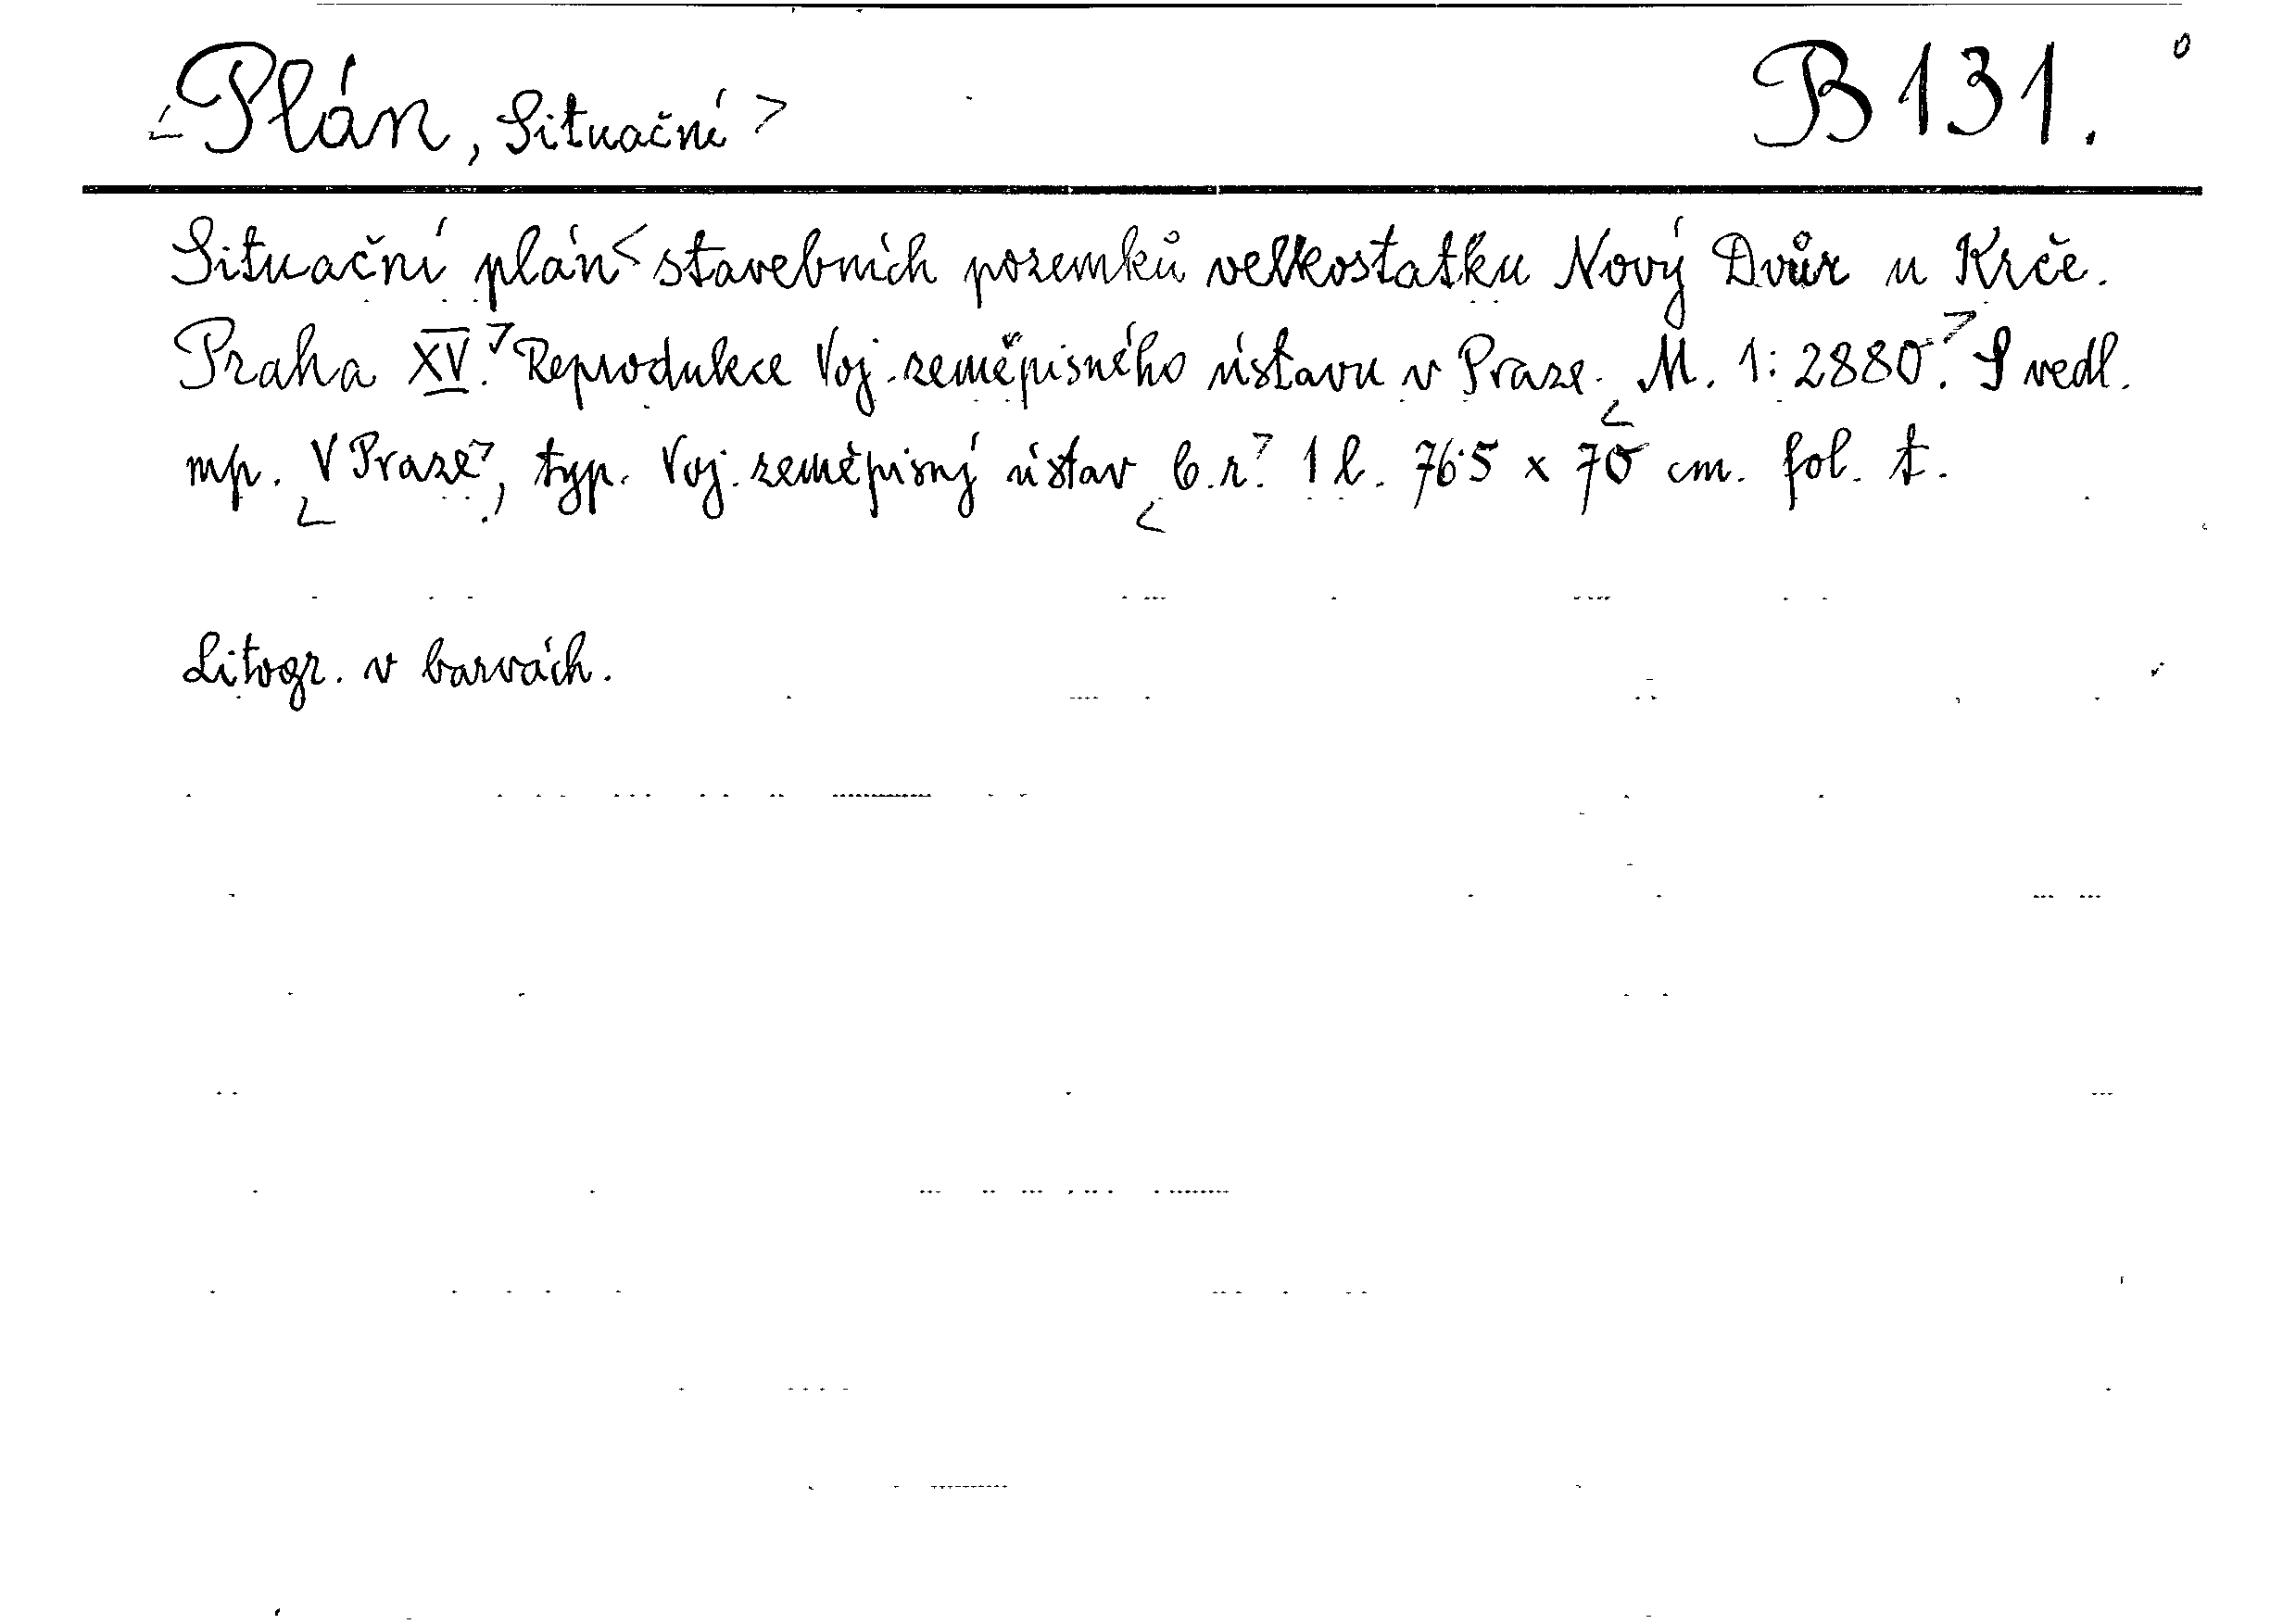 <Plán, Situační> B 131.
Situační plán< stavebních pozemků velkostatku Nový Dvůr u Krče.
Praha XV.> Reprodukce Voj. zeměpisného ústavu v Praze. < M. 1:2880.> S vedl.
mp. < V Praze>, typ. Voj. zeměpisný ústav < b.r.> 1 l. 76·5 x 70 cm. fol. t.
Litogr. v barvách.